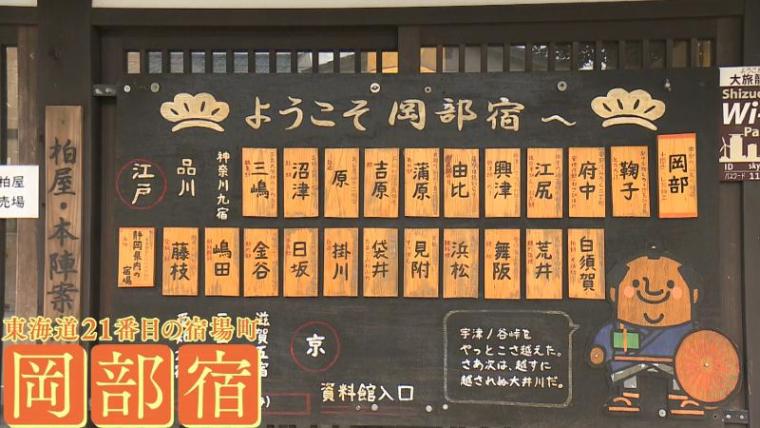 ようこそ岡部宿へ
江戸
品川
神奈川九宿
三嶋
沼津
原
吉原
蒲原
由比
興津
江尻
府中
鞠子
岡部
静岡県内の
宿場
藤枝
嶋田
金谷
日坂
掛川
袋井
見附
浜松
舞阪
荒井
白須賀
滋賀五宿
京
資料館入口
宇津ノ谷峠を
やっとこさ越えた。
さあ次は、越すに
越されぬ大井川だ。
柏屋・本陣案
柏屋
売場
大旅籠
Shizuo
Wi-
Pa
ID sky
パスワード 11
東海道21番目の宿場町
岡部宿